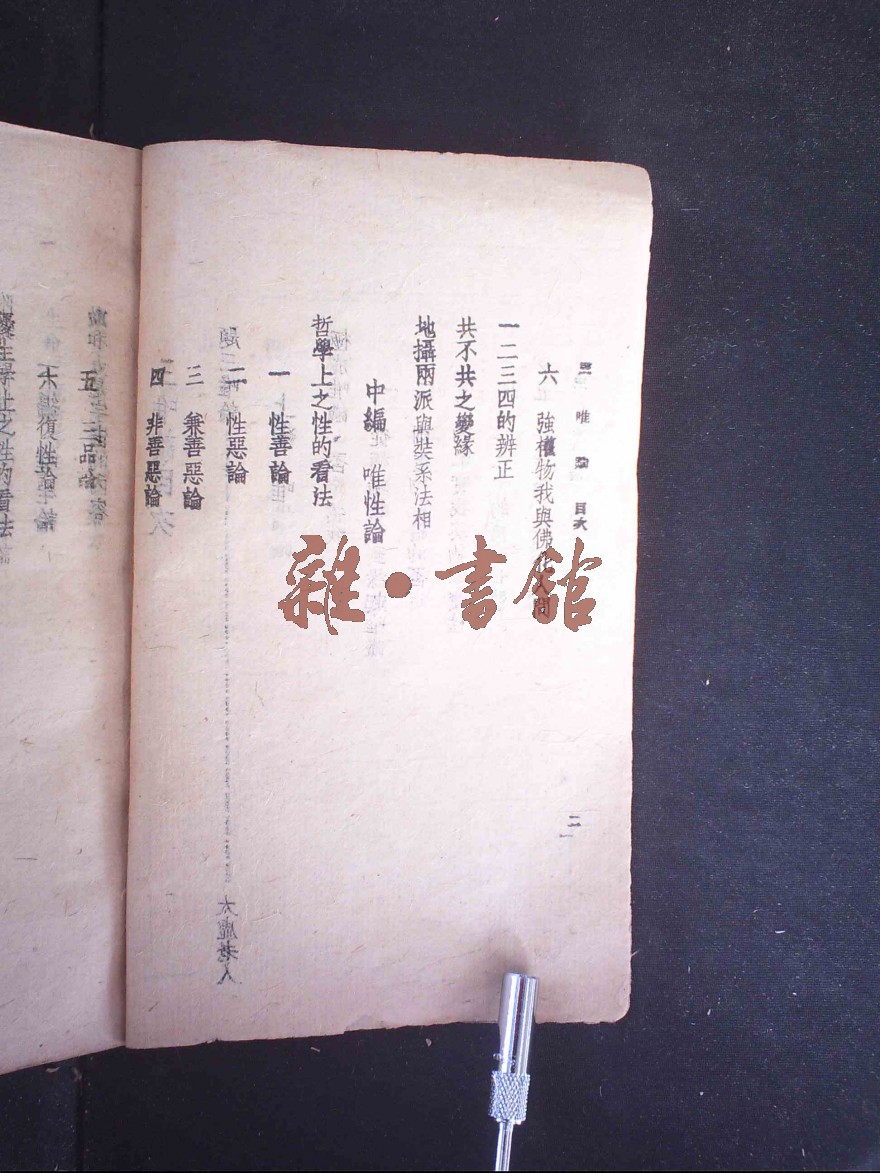 三唯論 目次
二
六 強權物我與佛化人間
一二三四的辨正
共不共之變緣
地攝兩派與裝系法相
中編 唯性論
哲學上之性的看法
一 性善論
二 性惡論
三 兼善惡論
四 非善惡論
五 三品論
六 復性論
雜·書館